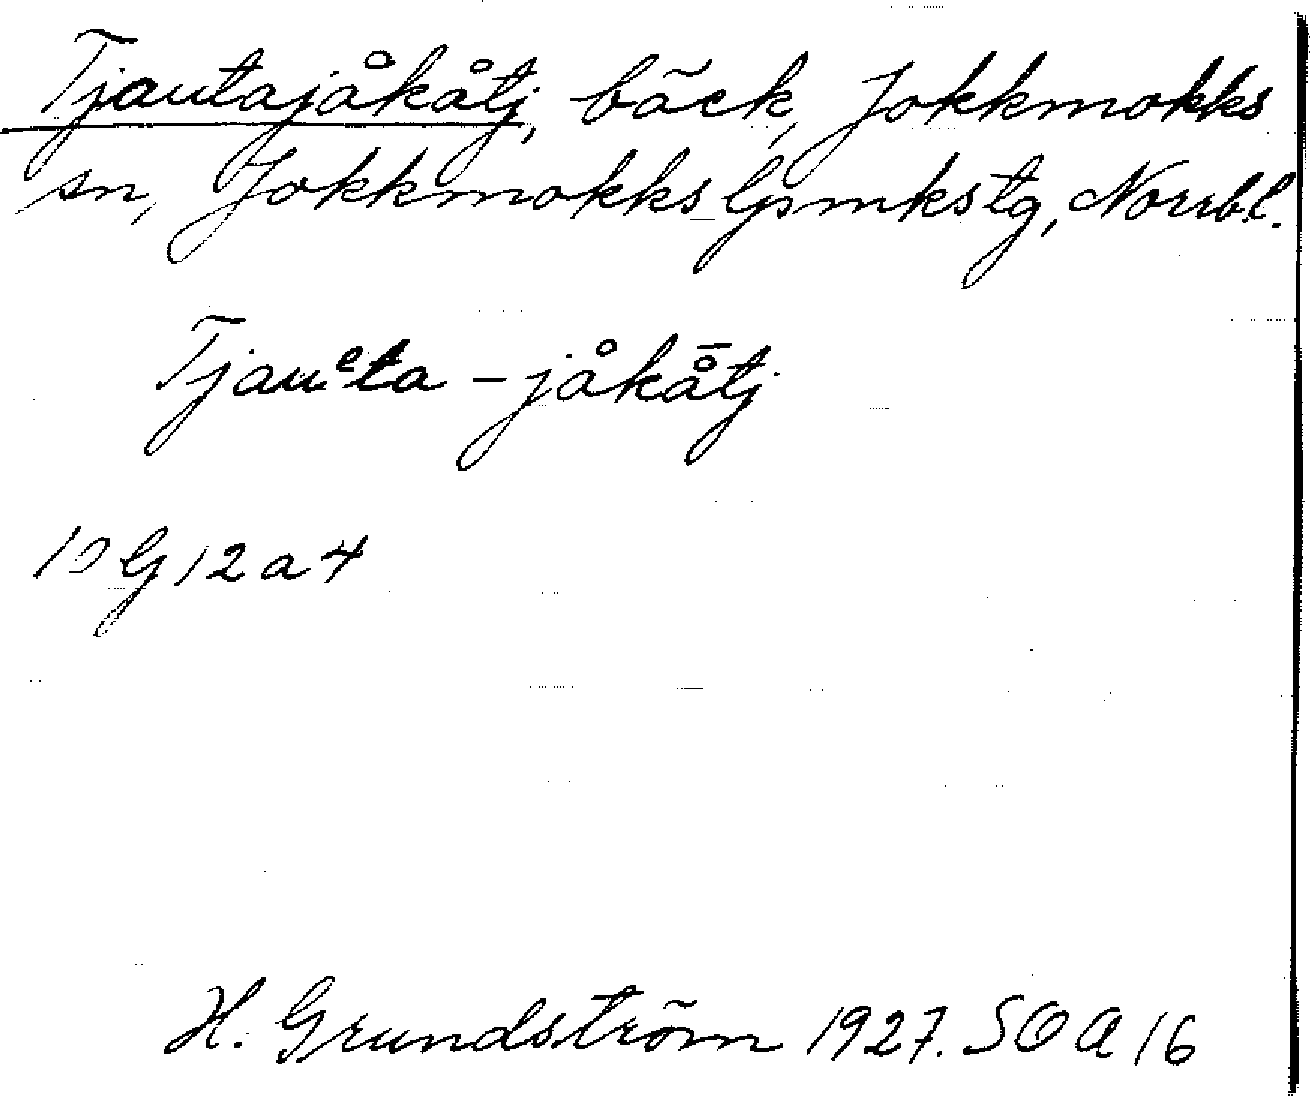 Tjautajåkåtj, bäck, Jokkmokks
sn, Jokkmokks lpmkstg, Norrb.l.
Tjauᵉta - jåkå̄tj
10 G 12 a 4
H. Grundström 1927. SOA 16